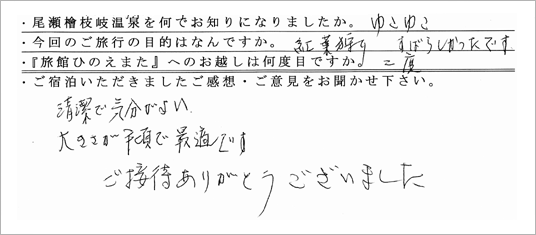 ・尾瀬檜枝岐温泉を何でお知りになりましたか。 ゆこゆこ
・今回のご旅行の目的はなんですか。 紅葉狩り すばらしかったです
・『旅館ひのえまた』へのお越しは何度目ですか。 二度
・ご宿泊いただきましたご感想・ご意見をお聞かせ下さい。
清潔で気分がよい
大きさが手頃で最適です
ご接待ありがとうございました